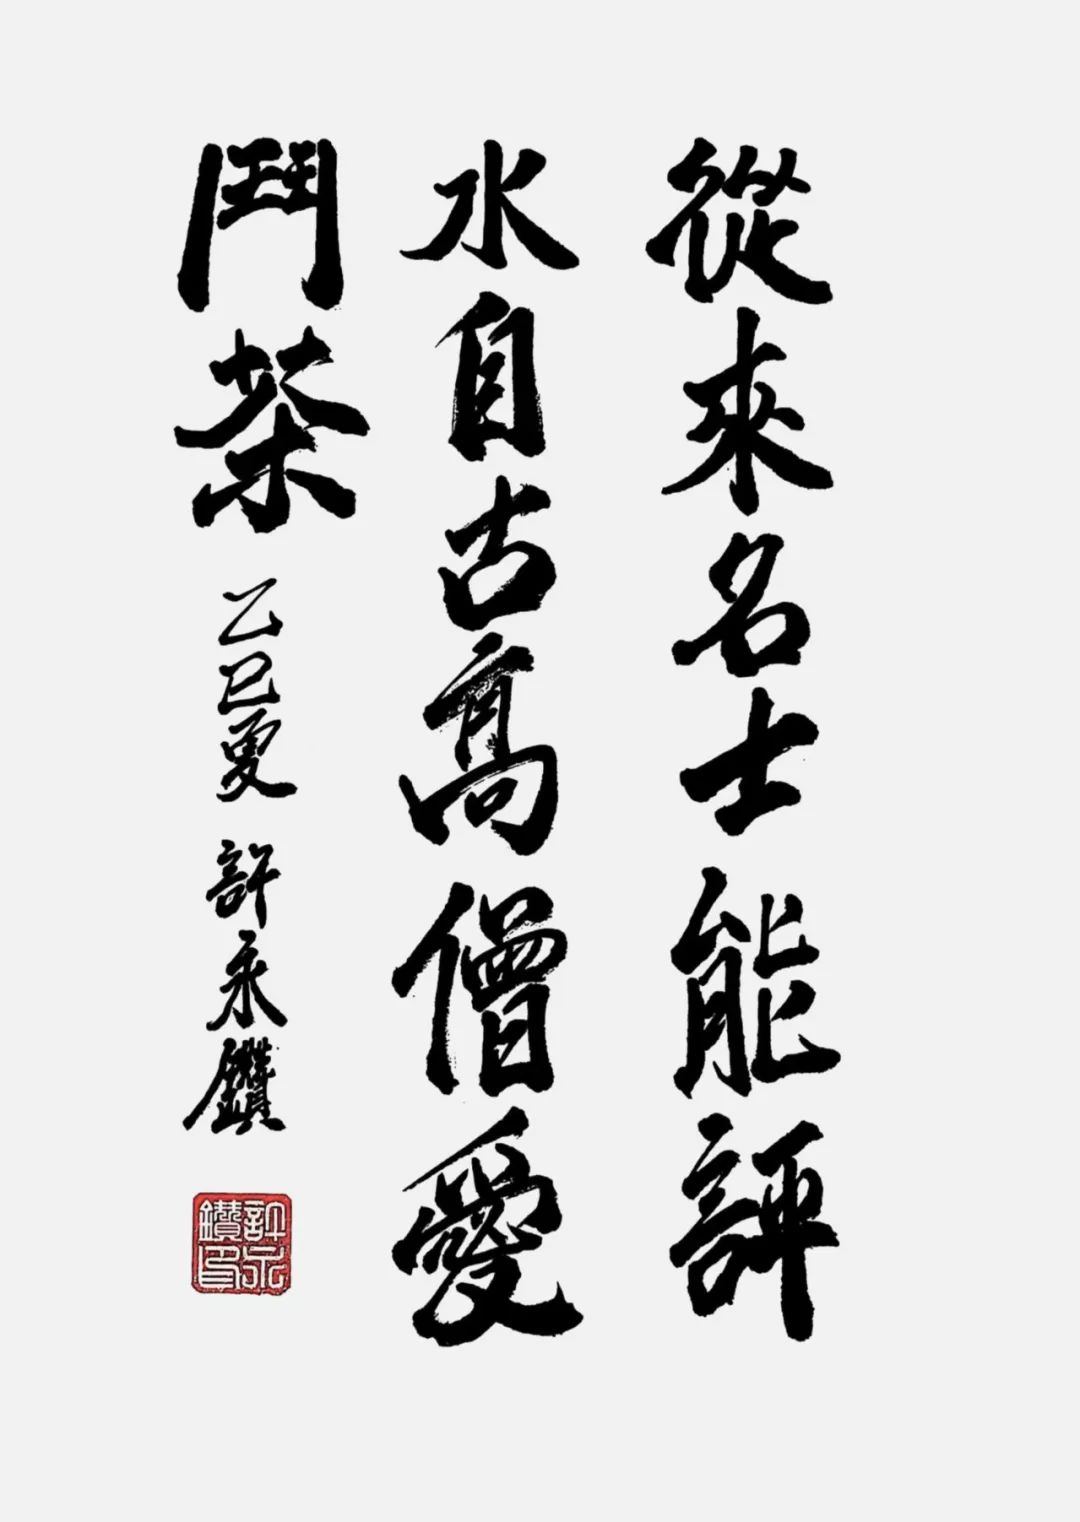 從來名士能評
水自古高僧愛
鬥茶
乙巳夏 許永鑽
許永鑽印